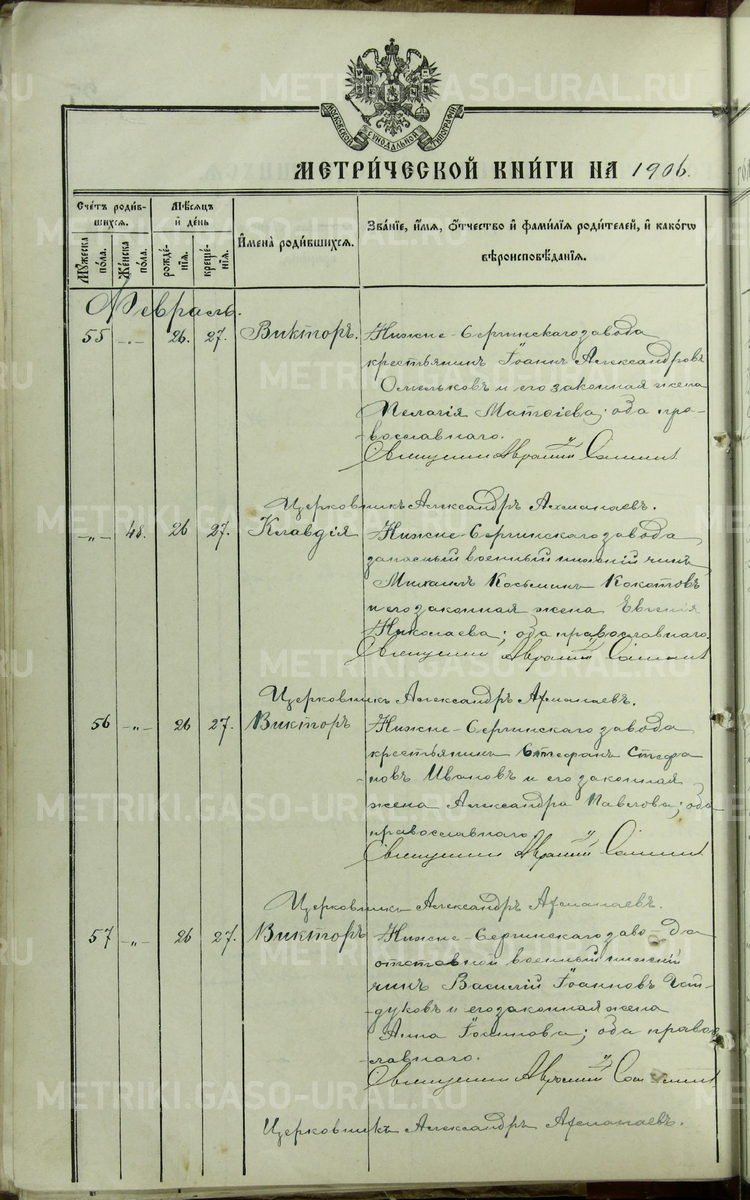 МОСКОВСКОЙ СѴНОДАЛЬНОЙ ТИПОГРАФІИ
МЕТРИ́ЧЕСКОЙ КНИ́ГИ НА 1906.
Счётъ роди́в-
шихся.
Мѣсяцъ
и҆ де́нь
Мꙋжеска пола.
Же́нска пола.
рожде́-
нїя.
креще́-
нїя.
И҆мена̀ роди́вшихся.
Зва́нїе, и҆́мя, ѻ҆́тчество и҆ фамі́лїя роди́телей, и҆ како́гѡ
вѣроисповѣ́данїя.
Февраль.
55 -„- 26. 27. Викторъ. Нижне-Сергинскаго завода
крестьянинъ Іоаннъ Александровъ
Омельковъ и его законная жена
Пелагія Матѳіева; оба пра-
вославнаго.
Священникъ Авраамій
Церковникъ Александръ
-„- 48. 26 27. Клавдія Нижне-Сергинскаго завода
запасный военный нижній чинъ
Михаилъ Косьминъ Кокотовъ
и его законная жена Евгенія
Николаева; оба православнаго.
Священникъ Авраамій
Церковникъ Александръ
56 -„- 26 27. Викторъ Нижне-Сергинскаго завода
крестьянинъ Стефанъ Стефа
новъ Ивановъ и его законная
жена Александра Павлова; оба
православнаго.
Священникъ Авраамій
Церковникъ Александръ
57 -„- 26 27. Викторъ Нижне-Сергинскаго заво-да
отставной военный нижній
чинъ Василій Іоанновъ
-дуковъ и его законная жена
Анна Іоаннова; оба правос
лавнаго.
Священникъ Авраамій
Церковникъ Александръ
METRIKI.GASO-URAL.RU